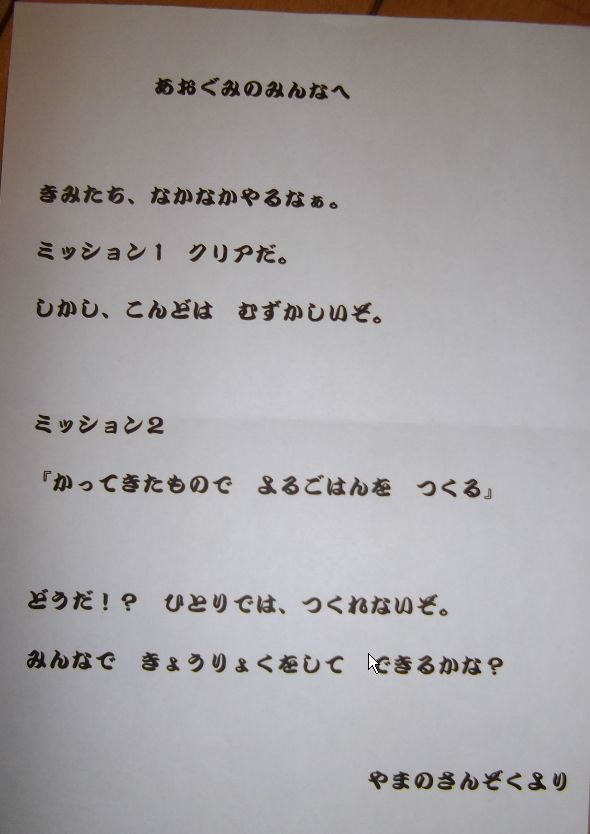 あおぐみのみんなへ
きみたち、なかなかやるなぁ。
ミッション1　クリアだ。
しかし、こんどは　むずかしいぞ。
ミッション2
『かってきたもので　よるごはんを　つくる』
どうだ！？　ひとりでは、つくれないぞ。
みんなで　きょうりょくをして　できるかな？
やまのさんぞくより